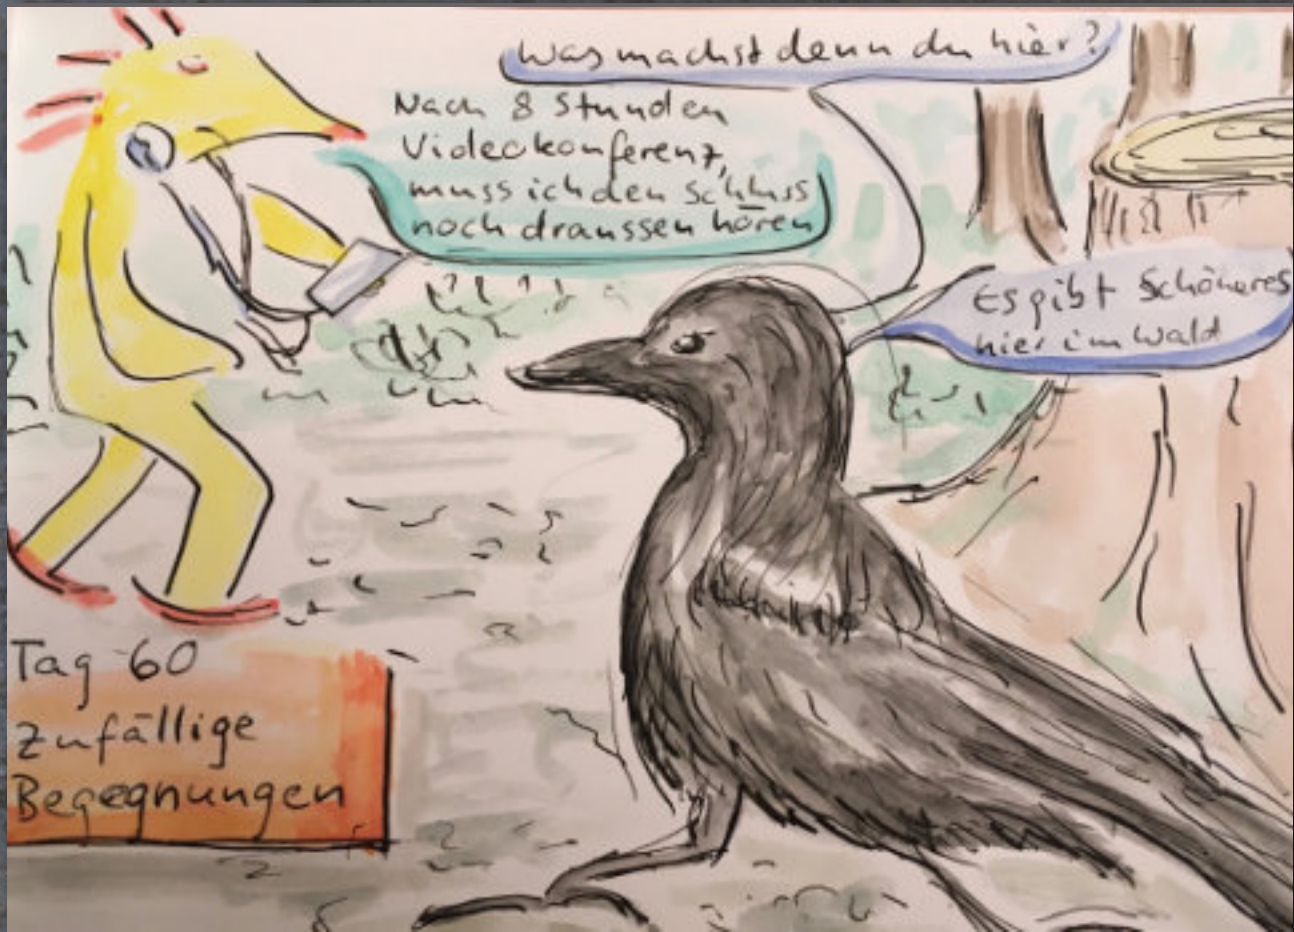 Was machst denn du hier?
Nach 8 Stunden
Videokonferenz,
muss ich den Schluss
noch draussen hören
Es gibt Schöneres
hier im Wald
Tag 60
Zufällige
Begegnungen